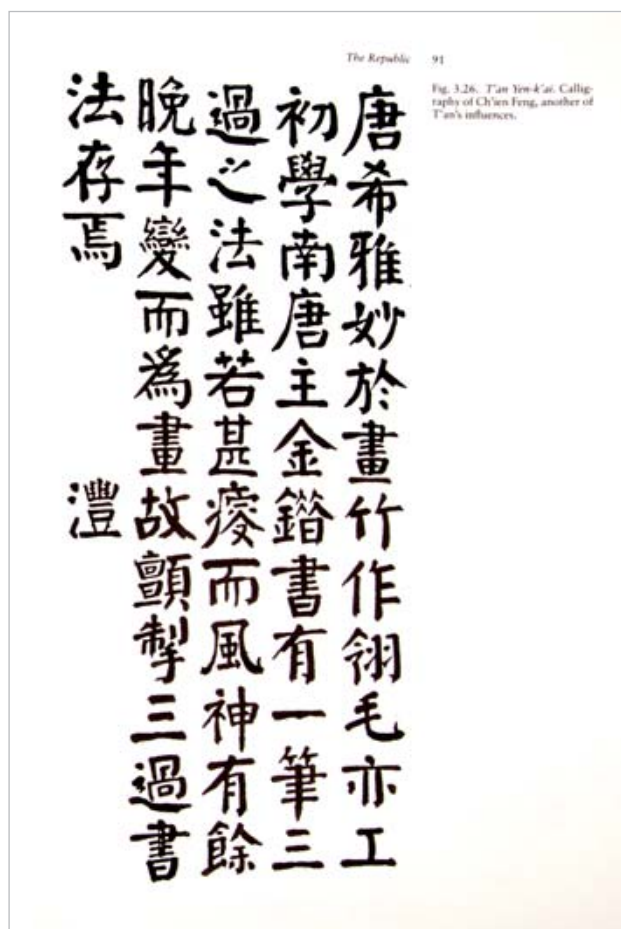 The Republic 91
Fig. 3.26. T'an Yen-k'ai. Callig-
raphy of Ch'ien Feng, another of
T'an's influences.
唐希雅妙於畫竹作翎毛亦工
初學南唐主金錯書有一筆三
過之法雖若甚瘘而風神有餘
晚年變而為畫故顫掣三過書
法存焉
灃